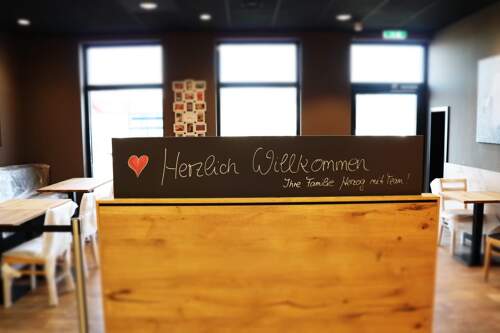 Herzlich Willkommen
Ihre Familie Herzog mit Team!